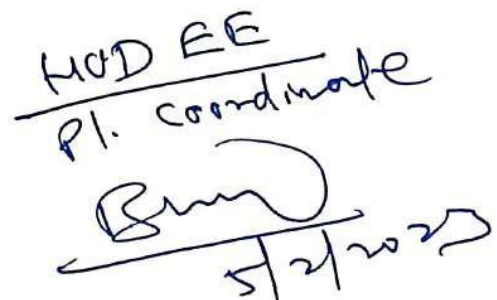 HOD EE
Pl. Coordinate
5/2/2023